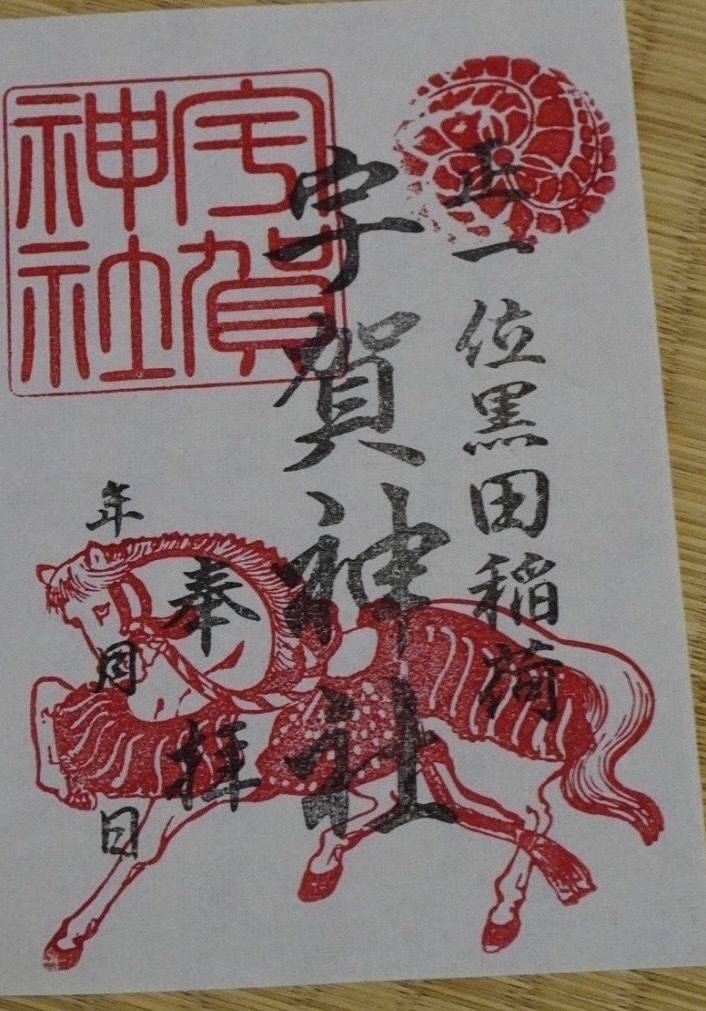 正一位黒田稲荷
宇賀神社
奉拝
年月日
宇賀
神社